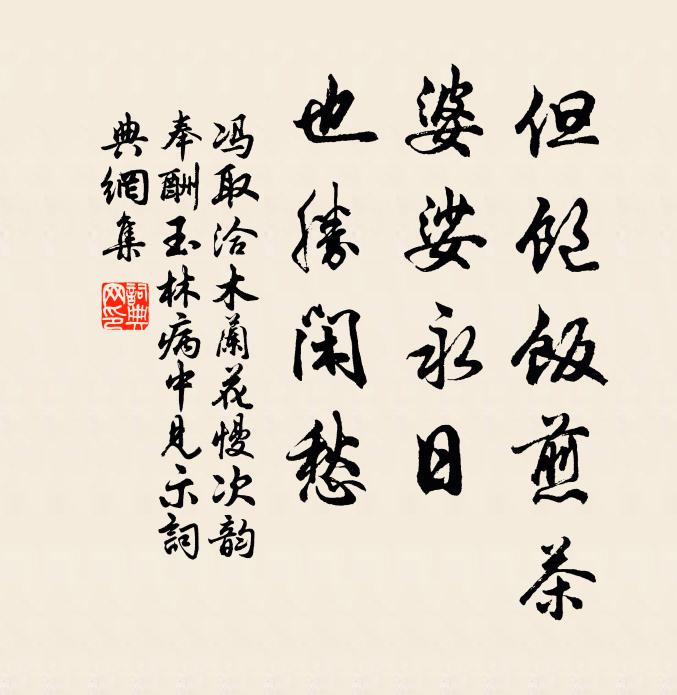 但饱饭煎茶
婆娑永日
也勝闲愁
冯取洽木蘭花慢次韵
奉酬玉林病中見示詞
典網集
詞典网印